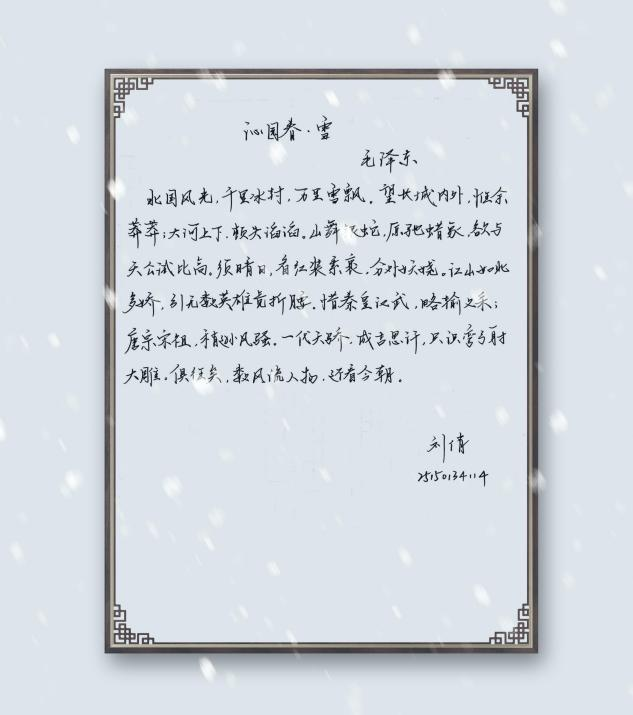 沁园春·雪
毛泽东
北国风光,千里冰封,万里雪飘。望长城内外,惟余
莽莽;大河上下,顿失滔滔。山舞银蛇,原驰蜡象,欲与
天公试比高。须晴日,看红装素裹,分外妖娆。江山如此
多娇,引无数英雄竞折腰。惜秦皇汉武,略输文采;
唐宗宋祖,稍逊风骚。一代天骄,成吉思汗,只识弯弓射
大雕。俱往矣,数风流人物,还看今朝。
刘倩
25150134114